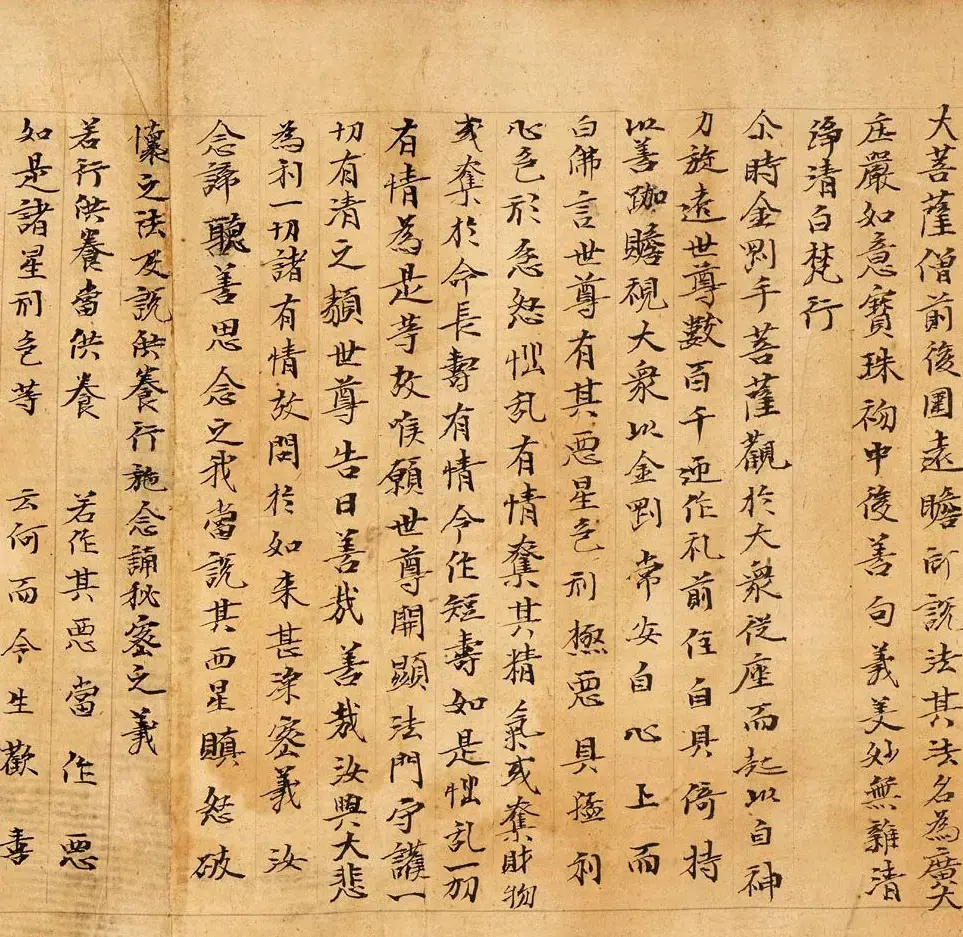 大菩薩僧前後圍遶瞻而說法其法名為廣大
庄嚴如意寶珠初中後善句義美妙無雜清
淨清白梵行
尒時金剛手菩薩觀於大衆從座而起以自神
力旋遶世尊數百千迊作礼前住自具倚持
以善跏瞻視大衆以金剛常安自心上而
白佛言世尊有其惡星色形極惡具猛利
心色形忿怒惱乱有情奪其精氣或奪財物
或奪於命長壽有情令作短壽如是惱乱一切
有情為是等故唯願世尊開顯法門守護一
切有情之類世尊告曰善哉善哉汝興大悲
為利一切諸有情故問於如来甚深密義汝
念諦聽善思念之我當說其西星瞋怒破
懷之法及說供養行施念誦秘密之義
若行供養當供養 若作其惡當作惡
如是諸星形色等 云何而令生歡喜